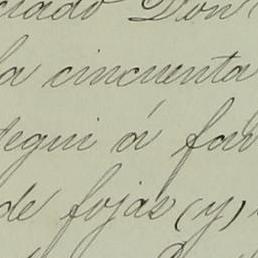 ciado Don
la cincuenta
tegui á fav
de fojas (y)